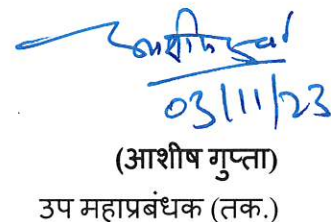 03/11/23
(आशीष गुप्ता)
उप महाप्रबंधक (तक.)